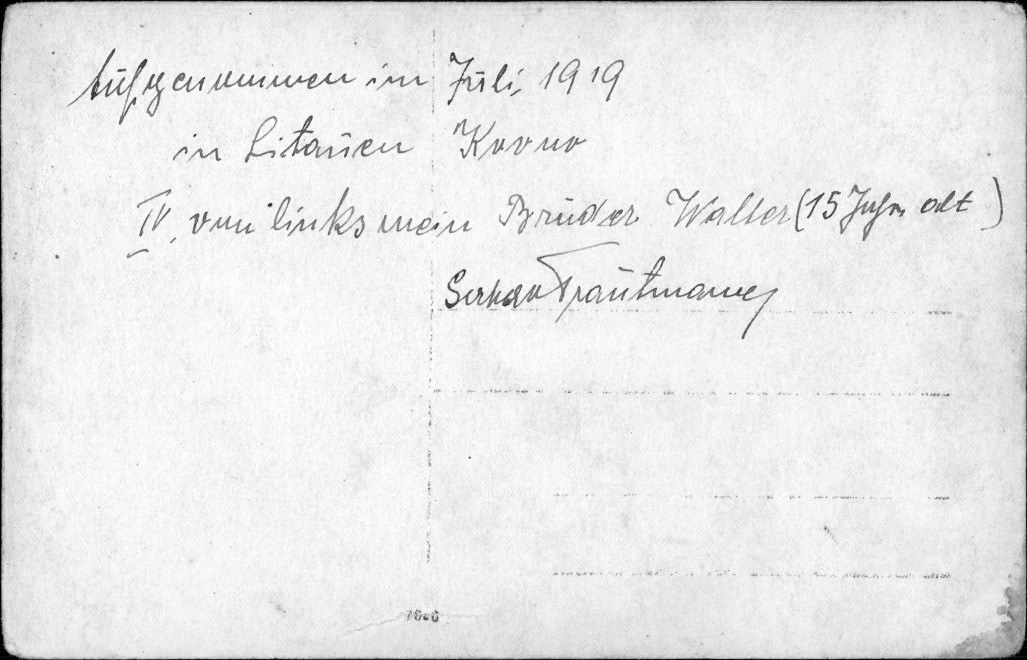 Aufgenommen im Juli, 1919
in Litauen Kovno
IV. von links mein Bruder Walter (15 Jahre alt)
Trautmann